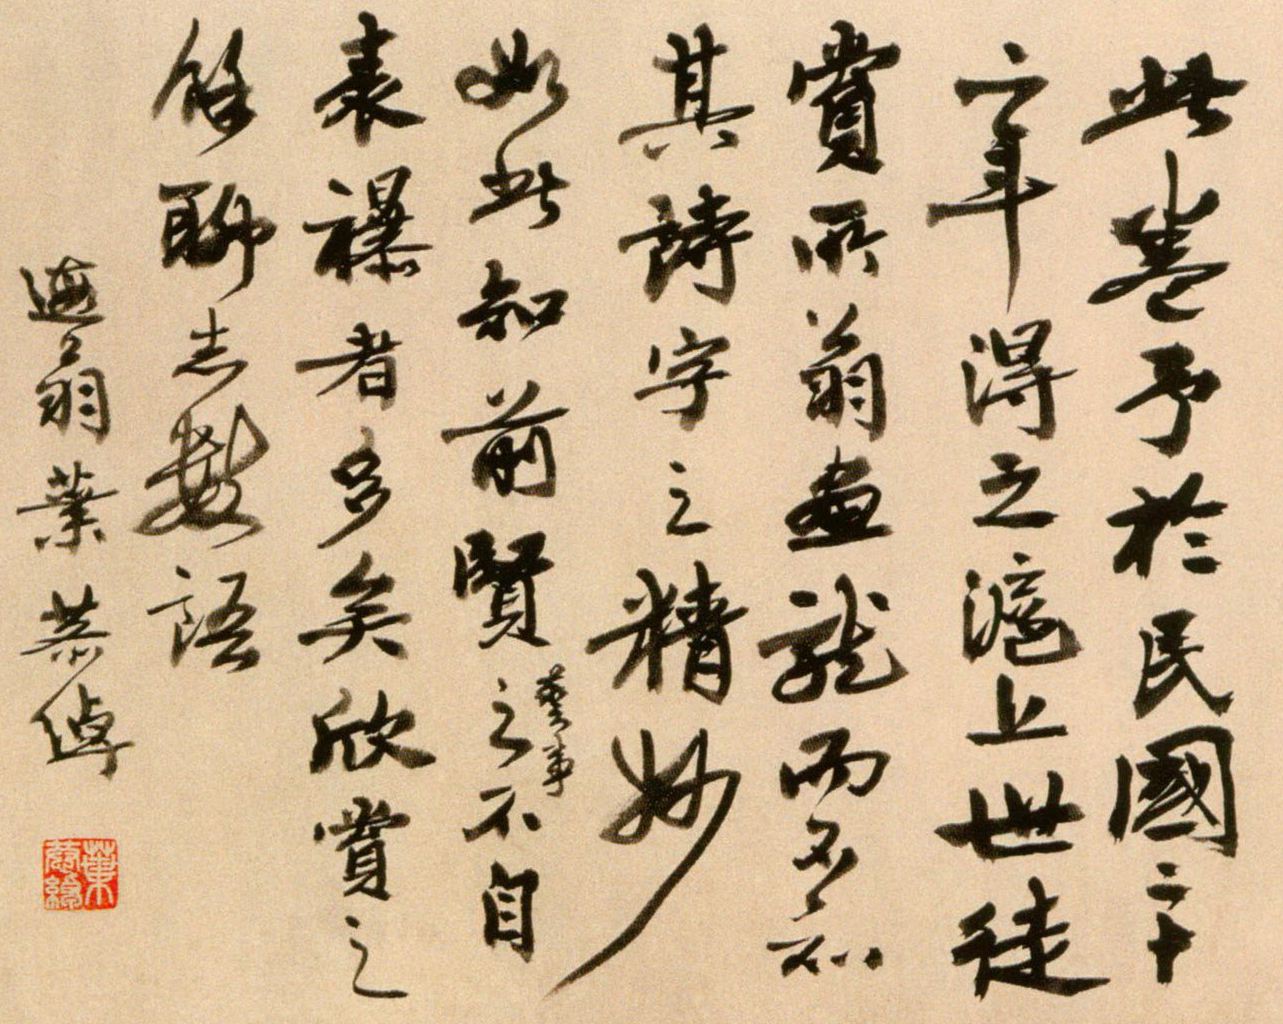 此卷予於民國二十
六年得之滬上世徒
賞所翁畫龍而不知
其詩字之精妙
如此知前賢之藝事不自
表襮者多矣欣賞之
餘聊志數語
遐翁葉恭綽
葉恭綽